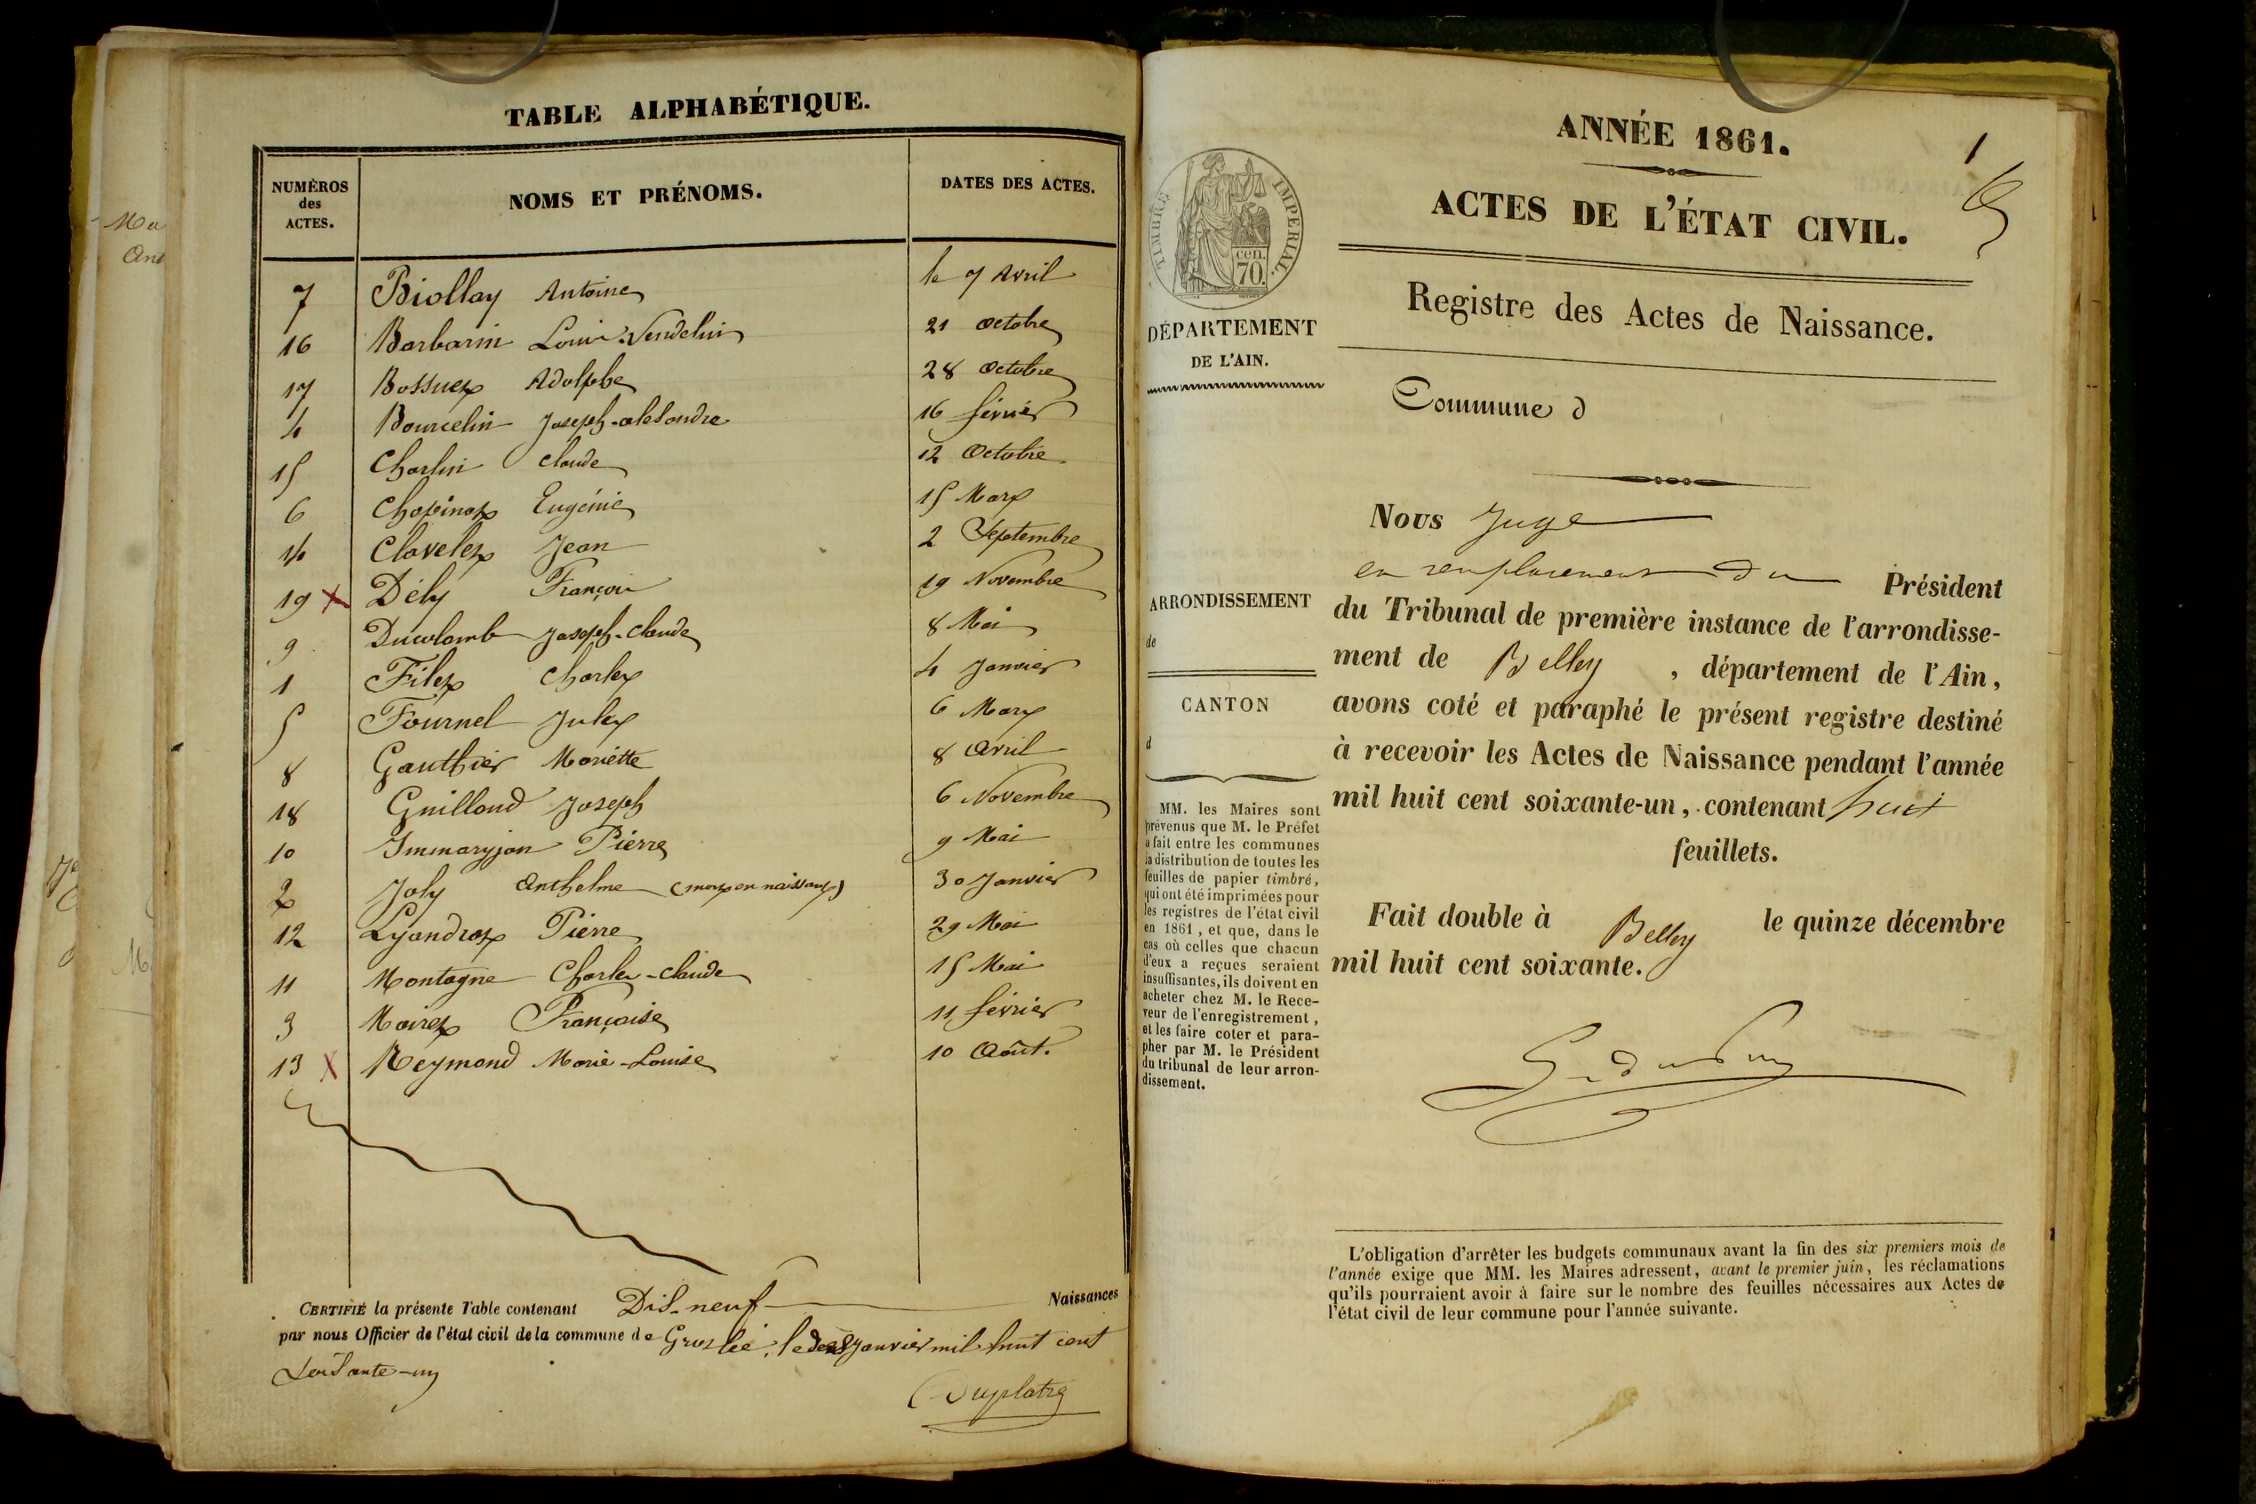 TABLE ALPHABÉTIQUE.
NUMÉROS des ACTES. NOMS ET PRÉNOMS. DATES DES ACTES.
7 Biollay Antoine le 7 Avril
16 Barbarin Louis-Vendelin 21 Octobre
17 Bossuet Adolphe 28 Octobre
4 Bourcelin Joseph-alexandre 16 février
15 Charlin Claude 12 Octobre
6 Chapinot Eugénie 15 Mars
14 Clavelet Jean 2 Septembre
19 X Dély François 19 Novembre
9 Ducolomb Joseph-Claude 8 Mai
1 Filet Charles 4 Janvier
5 Fournel Jules 6 Mars
8 Gauthier Mariette 8 Avril
18 Guilloud Joseph 6 Novembre
10 Immaryjon Pierre 9 Mai
2 Joly Anthelme (mort en naissant) 30 Janvier
12 Lyandrat Pierre 29 Mai
11 Montagne Charles-Claude 15 Mai
3 Moiret Françoise 11 février
13 X Reymond Marie-Louise 10 Août.
CERTIFIÉ la présente Table contenant Dix-neuf Naissances
par nous Officier de l'état civil de la commune de Groslée, le janvier mil huit cent
soixante-un
Duplatre
Ma
M
TIMBRE IMPERIAL.
cen. 70.
DÉPARTEMENT
DE L'AIN.
ARRONDISSEMENT
de
CANTON
d
MM. les Maires sont
prévenus que M. le Préfet
a fait entre les communes
la distribution de toutes les
feuilles de papier timbré,
qui ont été imprimées pour
les registres de l'état civil
en 1861, et que, dans le
cas où celles que chacun
d'eux a reçues seraient
insuffisantes, ils doivent en
acheter chez M. le Rece-
veur de l'enregistrement,
et les faire coter et para-
pher par M. le Président
du tribunal de leur arron-
dissement.
1
ANNÉE 1861.
ACTES DE L'ÉTAT CIVIL.
Registre des Actes de Naissance.
Commune d
Nous Juge
en remplacement du Président
du Tribunal de première instance de l'arrondisse-
ment de Belley, département de l'Ain,
avons coté et paraphé le présent registre destiné
à recevoir les Actes de Naissance pendant l'année
mil huit cent soixante-un, contenant huit
feuillets.
Fait double à Belley le quinze décembre
mil huit cent soixante.
L'obligation d'arrêter les budgets communaux avant la fin des six premiers mois de
l'année exige que MM. les Maires adressent, avant le premier juin, les réclamations
qu'ils pourraient avoir à faire sur le nombre des feuilles nécessaires aux Actes de
l'état civil de leur commune pour l'année suivante.